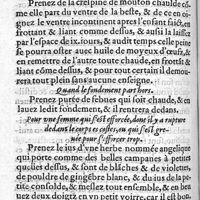 Prenez de la crespine de mouton chaulde cõ-
me elle part du ventre de la beste, & de ce en ceignez
le ventre incontinent apres l'enfant faict, en
frottant & liant comme dessus, & ainsi la laissez
par l'espace de ix. iours, & audit temps celle peste
se pourra oster auec huile de moyeux d'œufz, &
en remettre d'une autre toute chaude, en frotãt &
liant cõme dessus, & pour tout certain il demeu
rera tout plain sans aucune enseigne.
Quand le fondement part hors.
Prenez purée de febues qui soit chaude, & en
lauez ledit fondement, & il rentrera dedans.
Pour une femme qui s'est efforcée, dont il y a ruptu-
re dedans le corps es costez, ou qui s'est gre-
uée pour s'efforcer trop.
Prenez le ius d'une herbe nommée angelique
qui porte comme des belles campanes à petites
queües dessus, & sont de blãches & de violettes,
& pouldre de gingẽbre blanc, & du ius de la
petite consolde, & meslez tout ensemble, & en beu
uez deux doigtz en un petit voirre, & il est bon